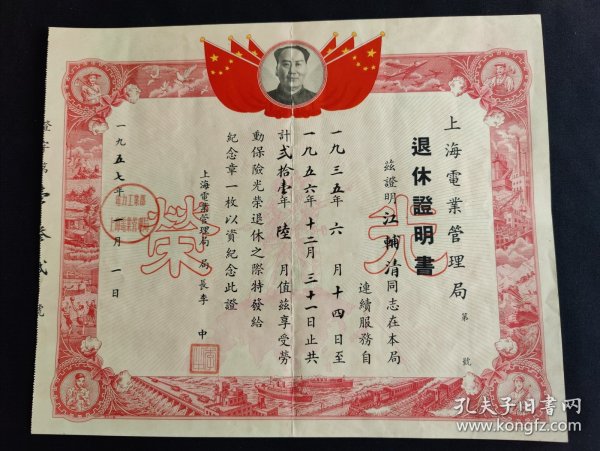 上海電業管理局
退休證明書
第 號
茲證明江輔清同志在本局
連續服務自
一九三五年六月十四日至
一九五六年十二月三十一日止共
計貳拾壹年陸月值茲享受勞
動保險光荣退休之際特發給
紀念章一枚以資紀念此證
上海電業管理局 局長李 申
一九五七年一月一日
光
榮
電力工業部
上海電業管理局
孔夫子旧书网
www.kongfz.com